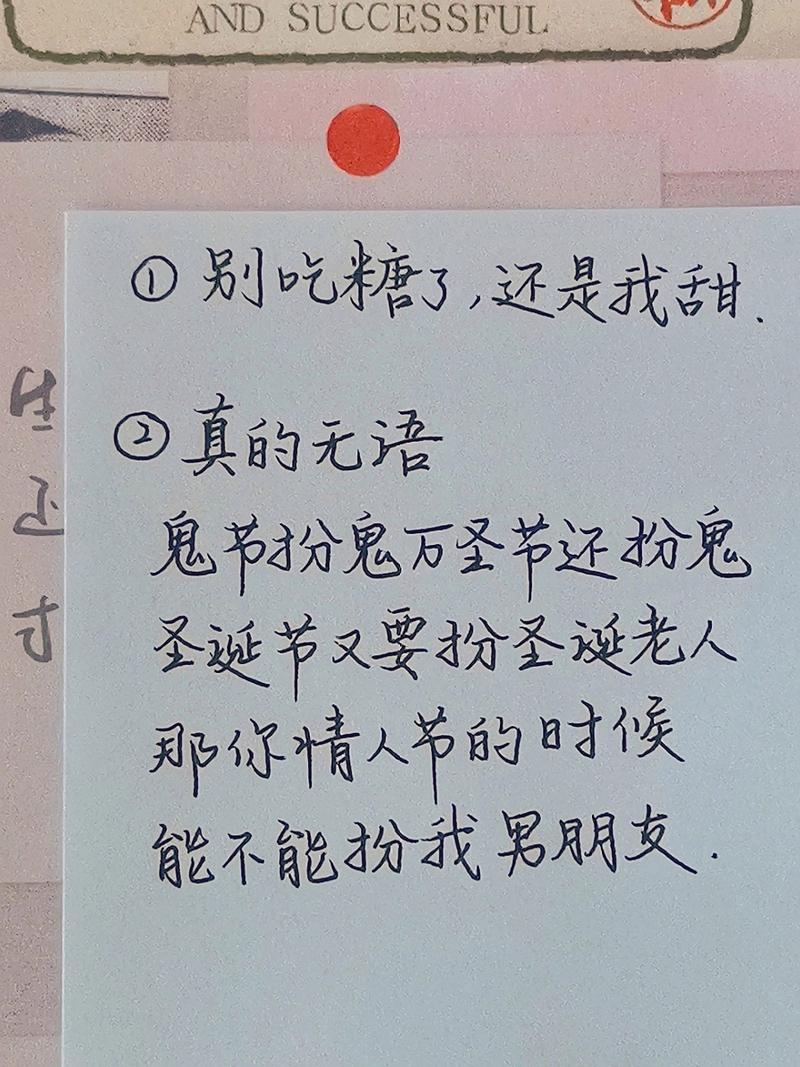 AND SUCCESSFUL
① 别吃糖了,还是我甜.
② 真的无语
鬼节扮鬼万圣节还扮鬼
圣诞节又要扮圣诞老人
那你情人节的时候
能不能扮我男朋友.